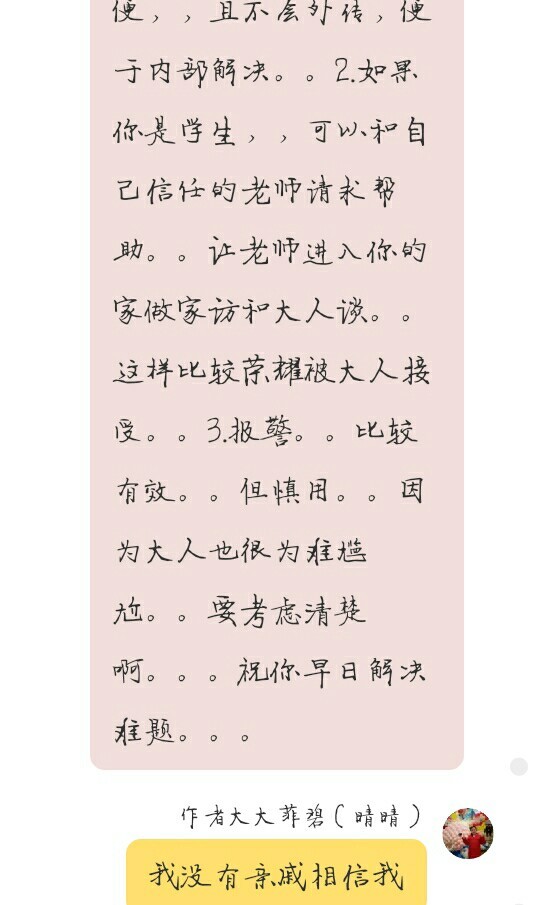 便，，且不会外传，便
于内部解决。。2.如果
你是学生，，可以和自
己信任的老师请求帮
助。。让老师进入你的
家做家访和大人谈。。
这样比较荣耀被大人接
受。。3.报警。。比较
有效。。但慎用。。因
为大人也很为难尴
尬。。要考虑清楚
啊。。。祝你早日解决
难题。。。
作者大大菲碧(晴晴)
我没有亲戚相信我